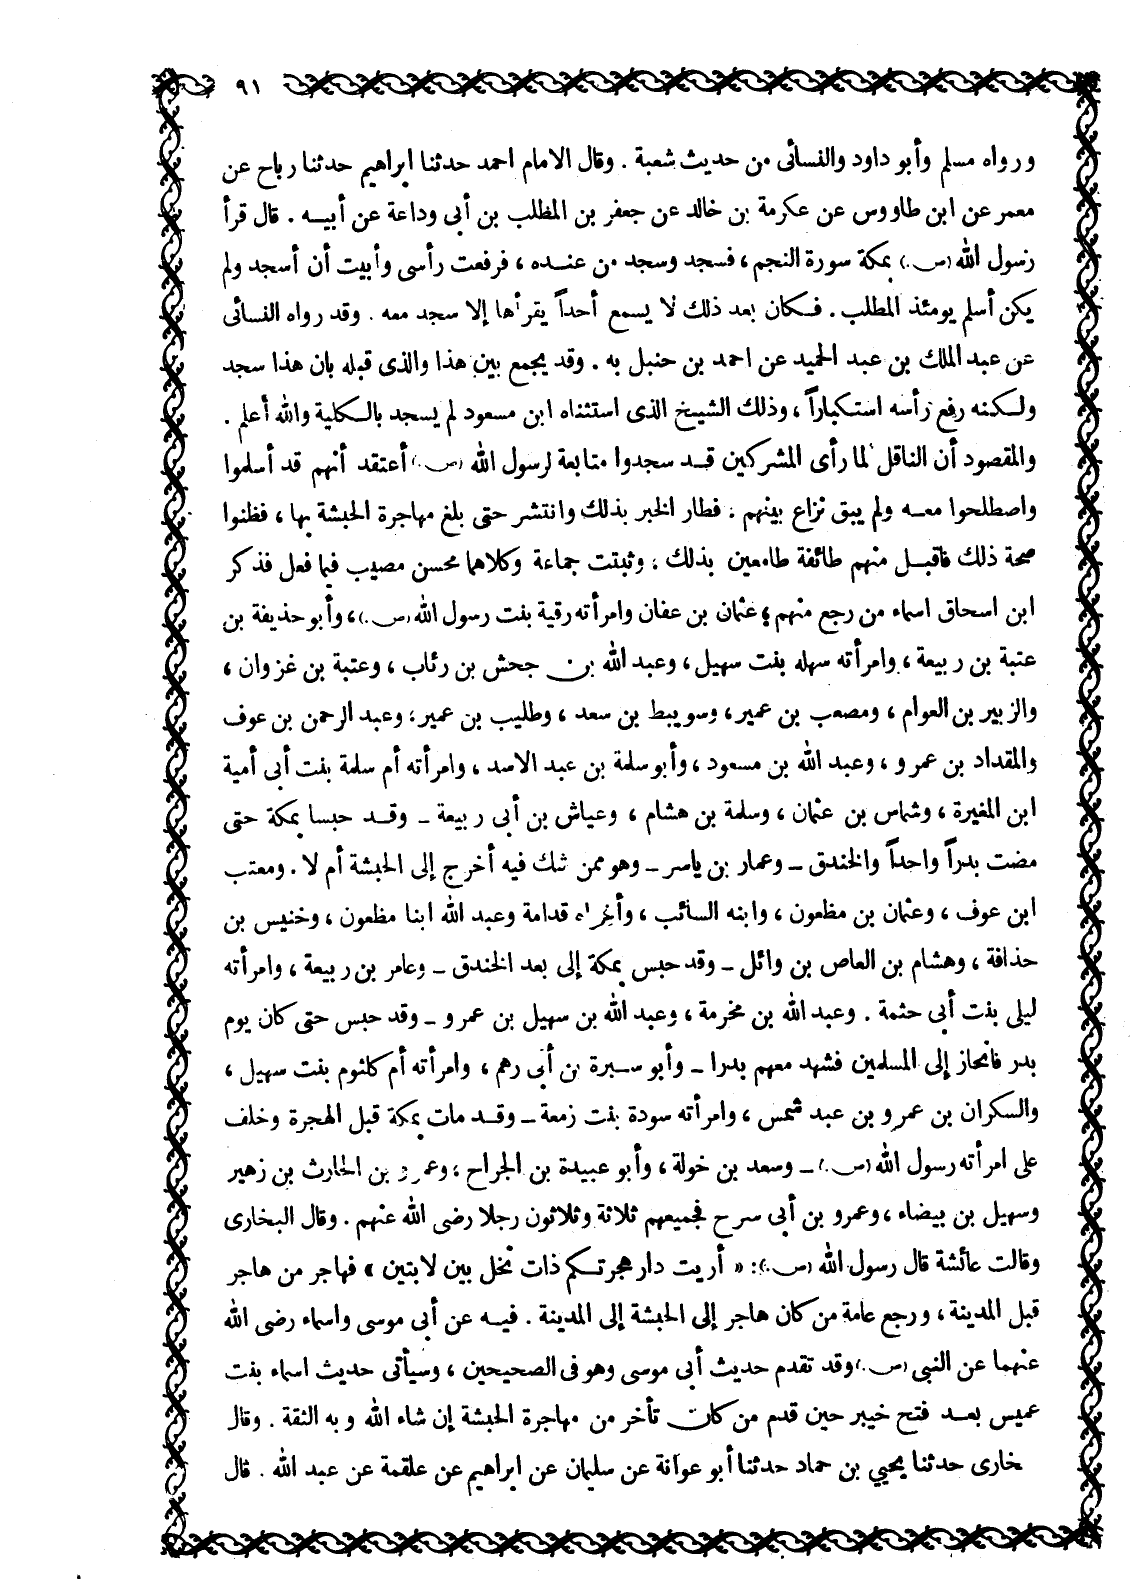 ٩١
ورواه مسلم وأبو داود والنسائى من حديث شعبة . وقال الامام احمد حدثنا ابراهيم حدثنا رباح عن
معمر عن ابن طاووس عن عكرمة بن خالد عن جعفر بن المطلب بن أبى وداعة عن أبيـه . قال قرأ
رسول الله (ص.) بمكة سورة النجم ، فسجد وسجد من عنـده ، فرفعت رأسى وأبيت أن أسجد ولم
يكن أسلم يومئذ المطلب . فـكان بعد ذلك لا يسمع أحداً يقرأها إلا سجد معه . وقد رواه النسائى
عن عبد الملك بن عبد الحميد عن احمد بن حنبل به . وقد يجمع بين هذا والذى قبله بان هذا سجد
ولـكنه رفع رأسه استكباراً ، وذلك الشيخ الذى استثناه ابن مسعود لم يسجد بالـكلية والله أعلم .
والمقصود أن الناقل لما رأى المشركين قـد سجدوا متابعة لرسول الله (ص.) أعتقد أنهم قد أسلموا
واصطلحوا معـه ولم يبق نزاع بينهم . فطار الخبر بذلك وانتشر حتى بلغ مهاجرة الحبشة بها ، فظنوا
صحة ذلك فاقبـل منهم طائفة طامعين بذلك ، وثبتت جماعة وكلاهما محسن مصيب فيما فعل فذكر
ابن اسحاق اسماء من رجع منهم ؛ عثمان بن عفان وامرأته رقية بنت رسول الله (ص.) ، وأبو حذيفة بن
عتبة بن ربيعة ، وامرأته سهله بنت سهيل ، وعبد الله بن جحش بن رئاب ، وعتبة بن غزوان ،
والزبير بن العوام ، ومصعب بن عمير ، وسويبط بن سعد ، وطليب بن عمير ، وعبد الرحمن بن عوف
والمقداد بن عمرو ، وعبد الله بن مسعود ، وأبو سلمة بن عبد الاسد ، وامرأته أم سلمة بنت أبى أمية
ابن المغيرة ، وشماس بن عثمان ، وسلمة بن هشام ، وعياش بن أبى ربيعة ـ وقـد حبسا بمكة حتى
مضت بدراً واحداً والخندق ـ وعمار بن ياسر ـ وهو ممن شك فيه أخرج إلى الحبشة أم لا . ومعتب
ابن عوف ، وعثمان بن مظعون ، وابنه السائب ، وأخواه قدامة وعبد الله ابنا مظعون ، وخنيس بن
حذافة ، وهشام بن العاص بن وائل ـ وقد حبس بمكة إلى بعد الخندق ـ وعامر بن ربيعة ، وامرأته
ليلى بنت أبى حثمة . وعبد الله بن مخرمة ، وعبد الله بن سهيل بن عمرو ـ وقد حبس حتى كان يوم
بدر فانحاز إلى المسلمين فشهد معهم بدرا ـ وأبو سـبرة بن أبى رهم ، وامرأته أم كلثوم بنت سهيل ،
والسكران بن عمرو بن عبد شمس ، وامرأته سودة بنت زمعة ـ وقـد مات بمكة قبل الهجرة وخلف
على امرأته رسول الله (ص.) ـ وسعد بن خولة ، وأبو عبيدة بن الجراح ، وعمرو بن الحارث بن زهير
وسهيل بن بيضاء ، وعمرو بن أبى سرح فجميعهم ثلاثة وثلاثون رجلا رضى الله عنهم . وقال البخارى
وقالت عائشة قال رسول الله (ص.): « أريت دار هجرتـكم ذات نخل بين لابتين » فهاجر من هاجر
قبل المدينة ، ورجع عامة من كان هاجر إلى الحبشة إلى المدينة . فيـه عن أبى موسى واسماء رضى الله
عنهما عن النبى (ص.) وقد تقدم حديث أبى موسى وهو فى الصحيحين ، وسيأتى حديث اسماء بنت
عميس بعـد فتح خيبر حين قدم من كان تأخر من مهاجرة الحبشة إن شاء الله وبه الثقة . وقال
خارى حدثنا يحيى بن حماد حدثنا أبو عوانة عن سليمان عن ابراهيم عن علقمة عن عبد الله . قال